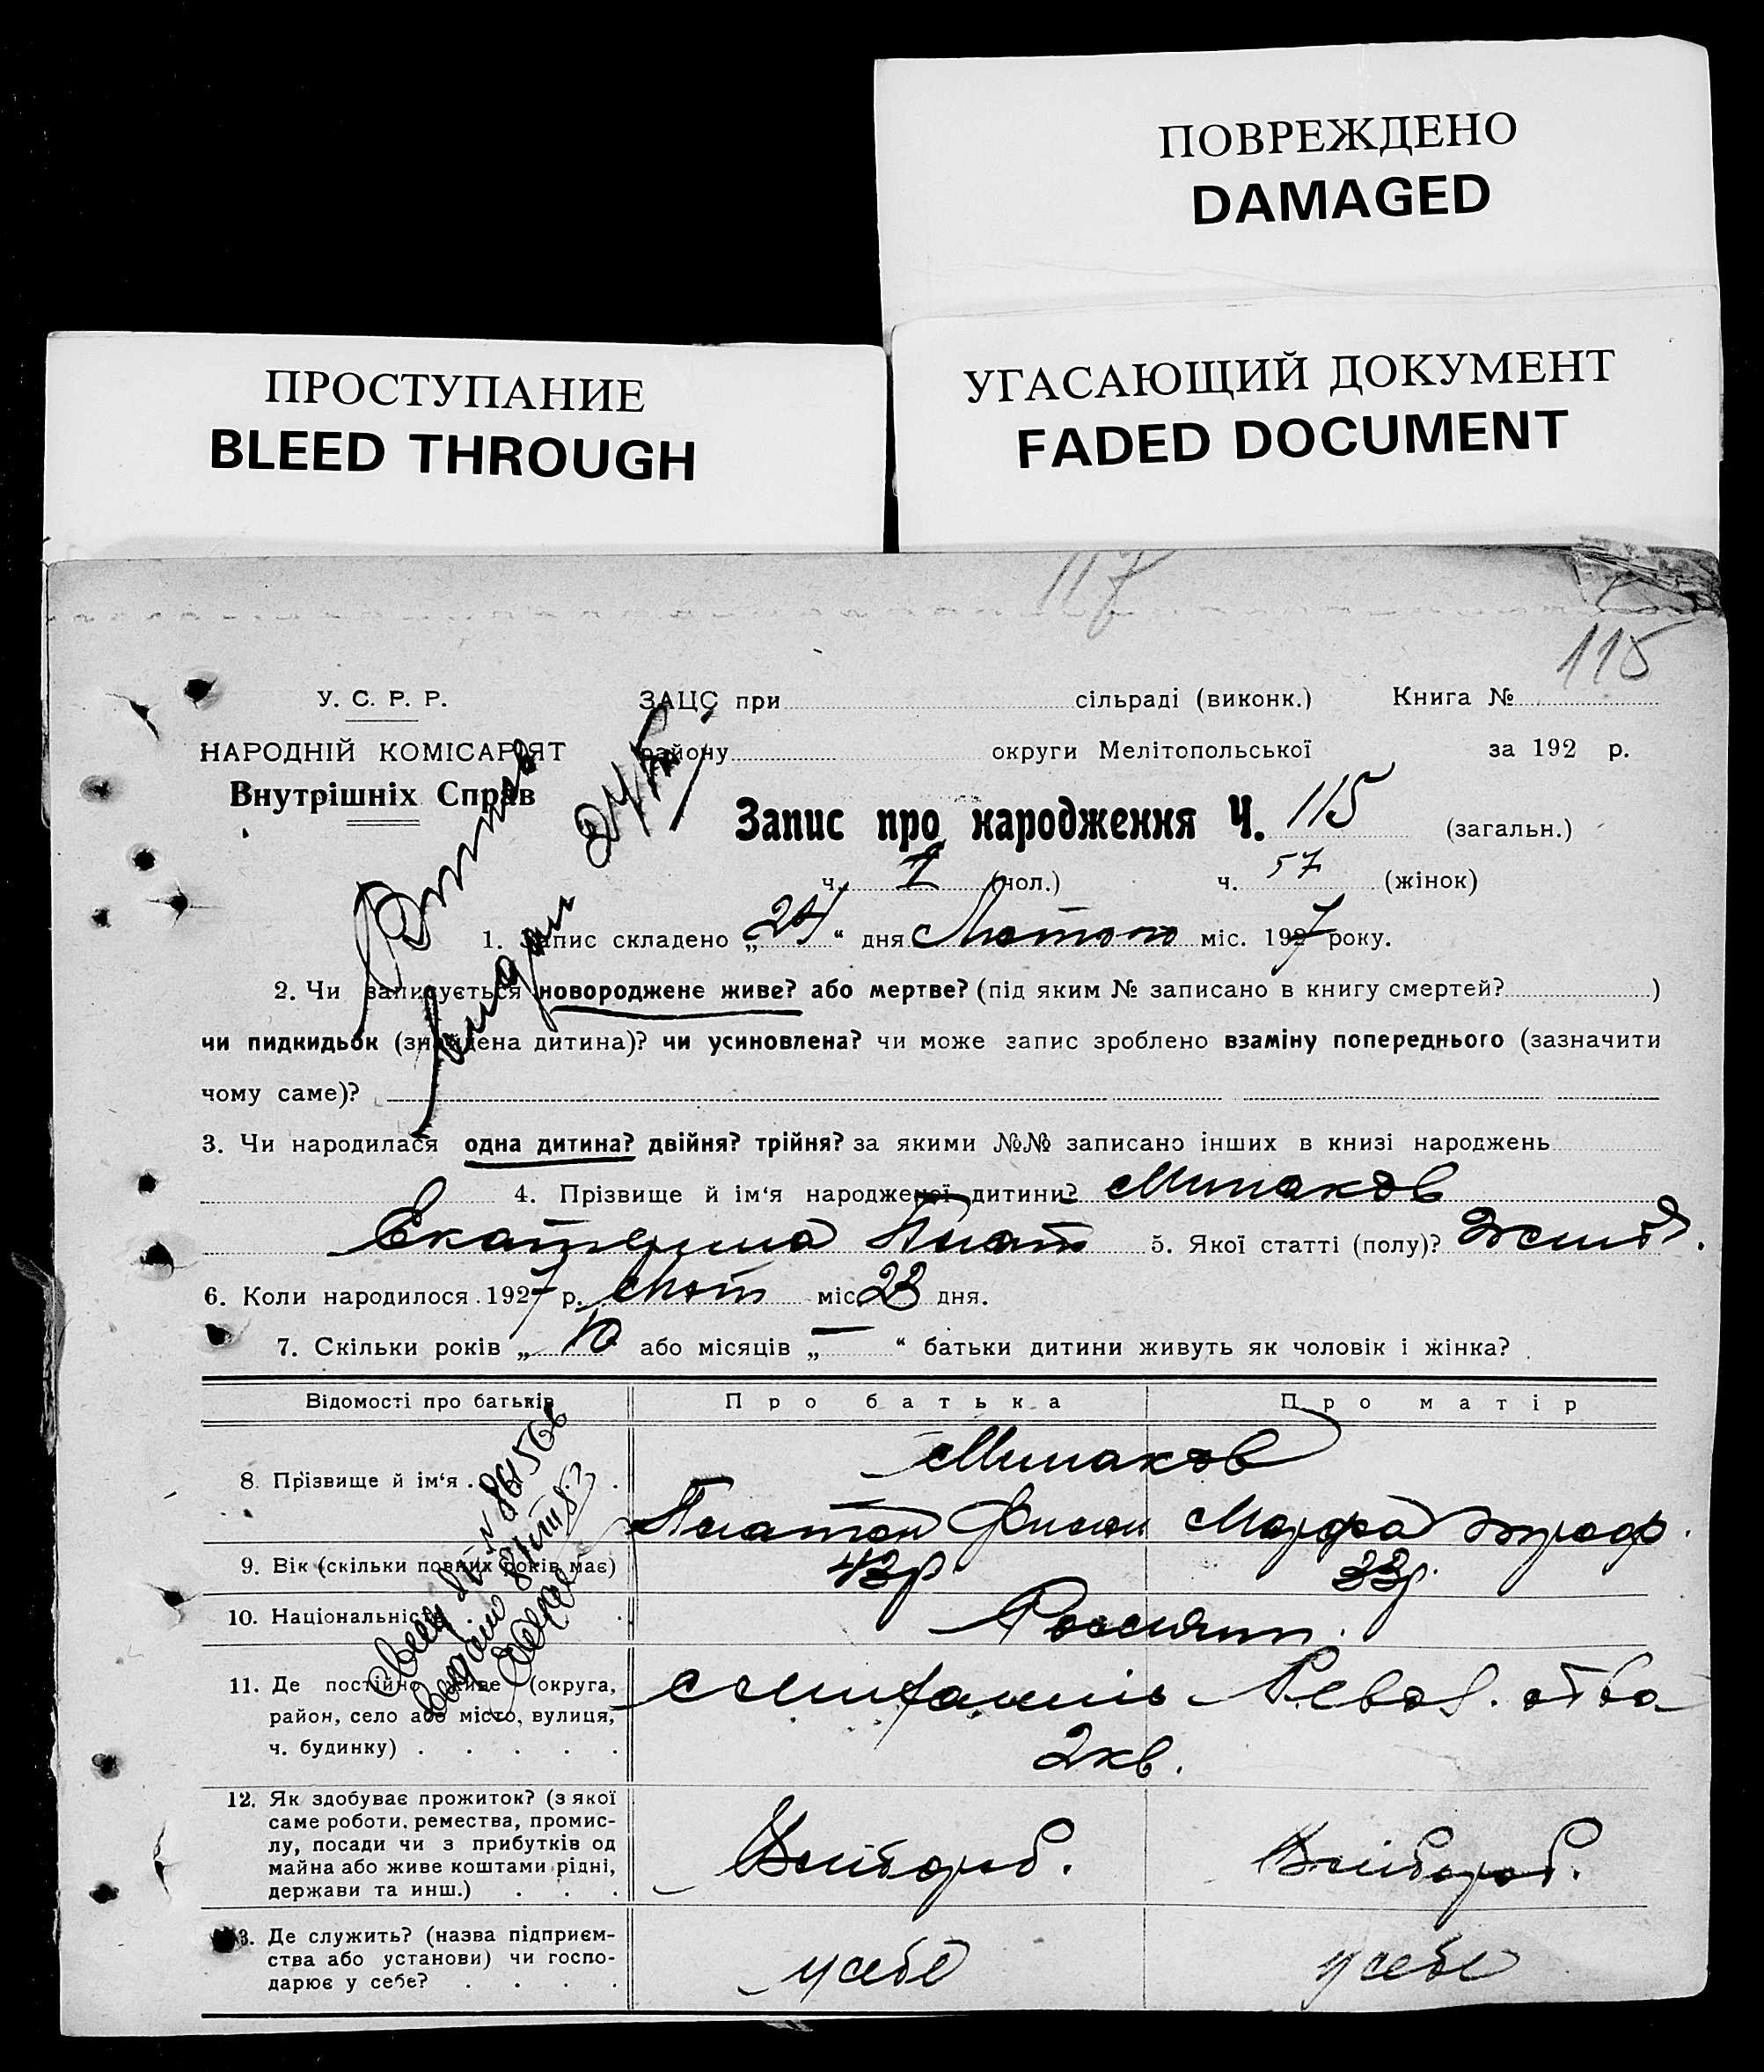 ПОВРЕЖДЕНО
DAMAGED
ПРОСТУПАНИЕ
BLEED THROUGH
УГАСАЮЩИЙ ДОКУМЕНТ
FADED DOCUMENT
117
115
У. С. Р. Р.
НАРОДНІЙ КОМІСАРІЯТ
Внутрішніх Справ
ЗАЦС при сільраді (виконк.) Книга №
району округи Мелітопольської за 192 р.
Запис про народження Ч. 115 (загальн.)
ч. (чол.) ч. 57 (жінок)
1. Запис складено „24“ дня Лютого міс. 1927 року.
2. Чи записується новороджене живе? або мертве? (під яким № записано в книгу смертей? )
чи пидкидьок (знайдена дитина)? чи усиновлена? чи може запис зроблено взаміну попереднього (зазначити
чому саме)?
3. Чи народилася одна дитина? двійня? трійня? за якими №№ записано інших в книзі народжень
4. Прізвище й ім‘я народженої дитини? Минаков
Екатерина Плат 5. Якої статті (полу)?
6. Коли народилося 1927 р. Лют міс 23 дня.
7. Скільки років „10 або місяців „—“ батьки дитини живуть як чоловік і жінка?
Відомості про батьків Про батька Про матір
8. Прізвище й ім‘я . . Минаков
Платон Марфа
9. Вік (скільки повних років має) 43р. 33р.
10. Національність . . Россияни.
11. Де постійно живе (округа,
район, село або місто, вулиця,
ч. будинку) . . . . .
2кв.
12. Як здобуває прожиток? (з якої
саме роботи, ремества, промис-
лу, посади чи з прибутків од
майна або живе коштами рідні,
держави та инш.) . . .
Хлібороб. Хлібороб.
13. Де служить? (назва підприєм-
ства або установи) чи госпо-
дарює у себе? . . . .
у себе у себе